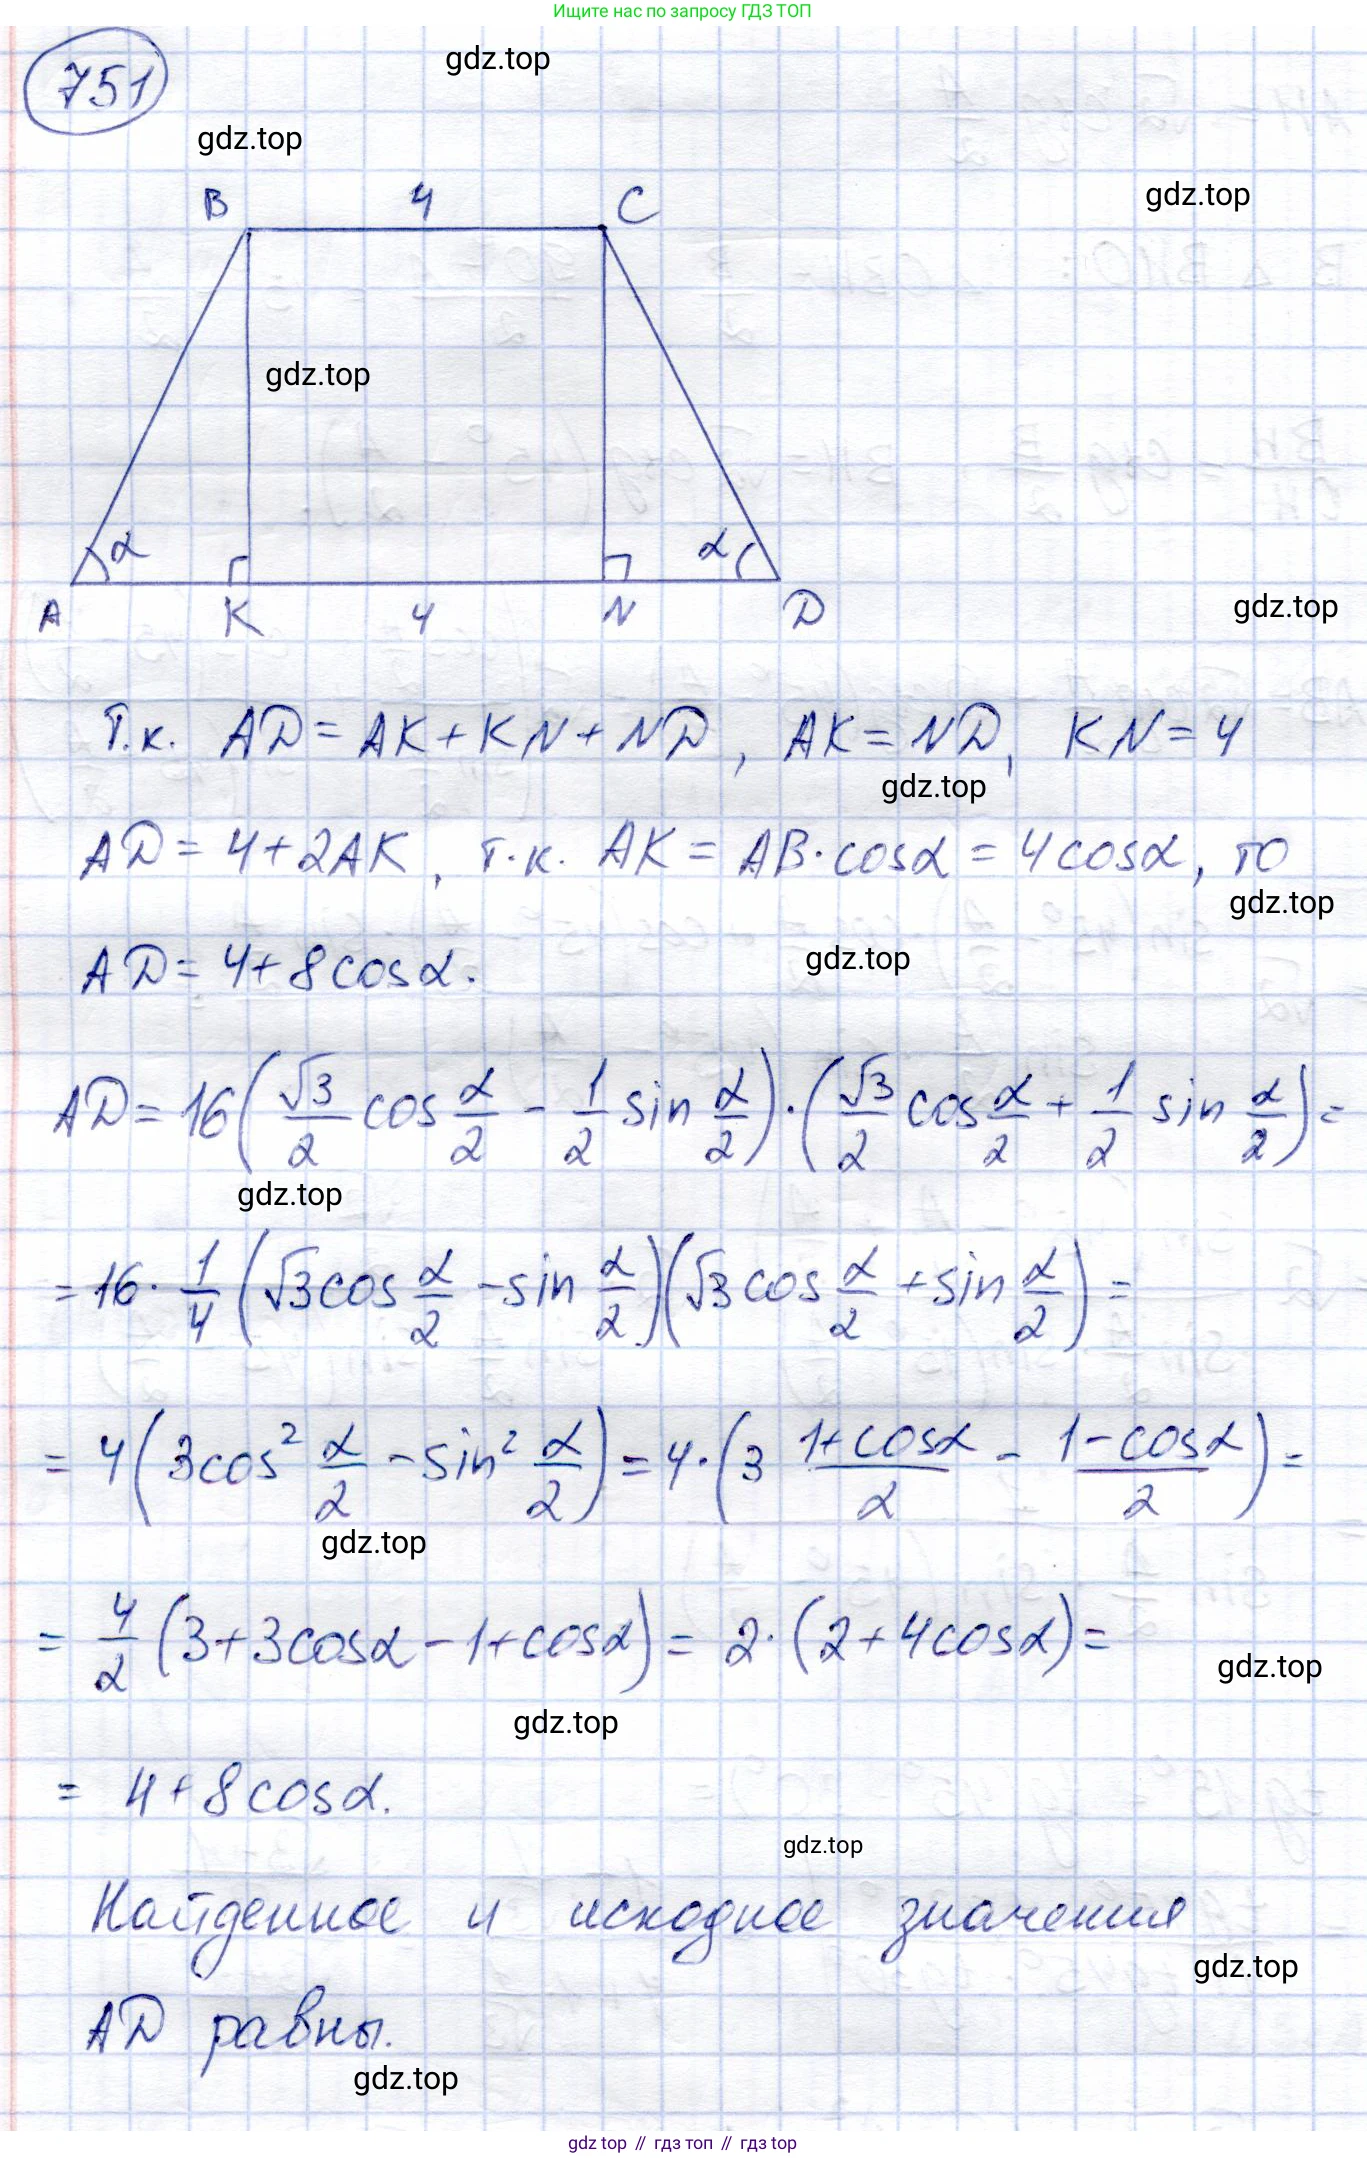 Ищите нас по запросу ГДЗ ТОП
751
gdz.top
gdz.top
gdz.top
B 4 C
gdz.top
α α
A K 4 N D
gdz.top
Т.к. AD = AK + KN + ND, AK = ND, KN = 4
gdz.top
AD = 4 + 2AK, т.к. AK = AB · cosα = 4cosα, то
gdz.top
AD = 4 + 8cosα.
gdz.top
AD = 16(√3/2 cos α/2 − 1/2 sin α/2) · (√3/2 cos α/2 + 1/2 sin α/2) =
gdz.top
= 16 · 1/4 (√3cos α/2 − sin α/2)(√3cos α/2 + sin α/2) =
= 4(3cos² α/2 − sin² α/2) = 4 · (3 (1+cosα)/2 − (1−cosα)/2) =
gdz.top
= 4/2 (3 + 3cosα − 1 + cosα) = 2 · (2 + 4cosα) =
gdz.top
gdz.top
= 4 + 8cosα.
gdz.top
Найденное и исходное значения
gdz.top
AD равны.
gdz.top
gdz top // гдз топ // гдз top